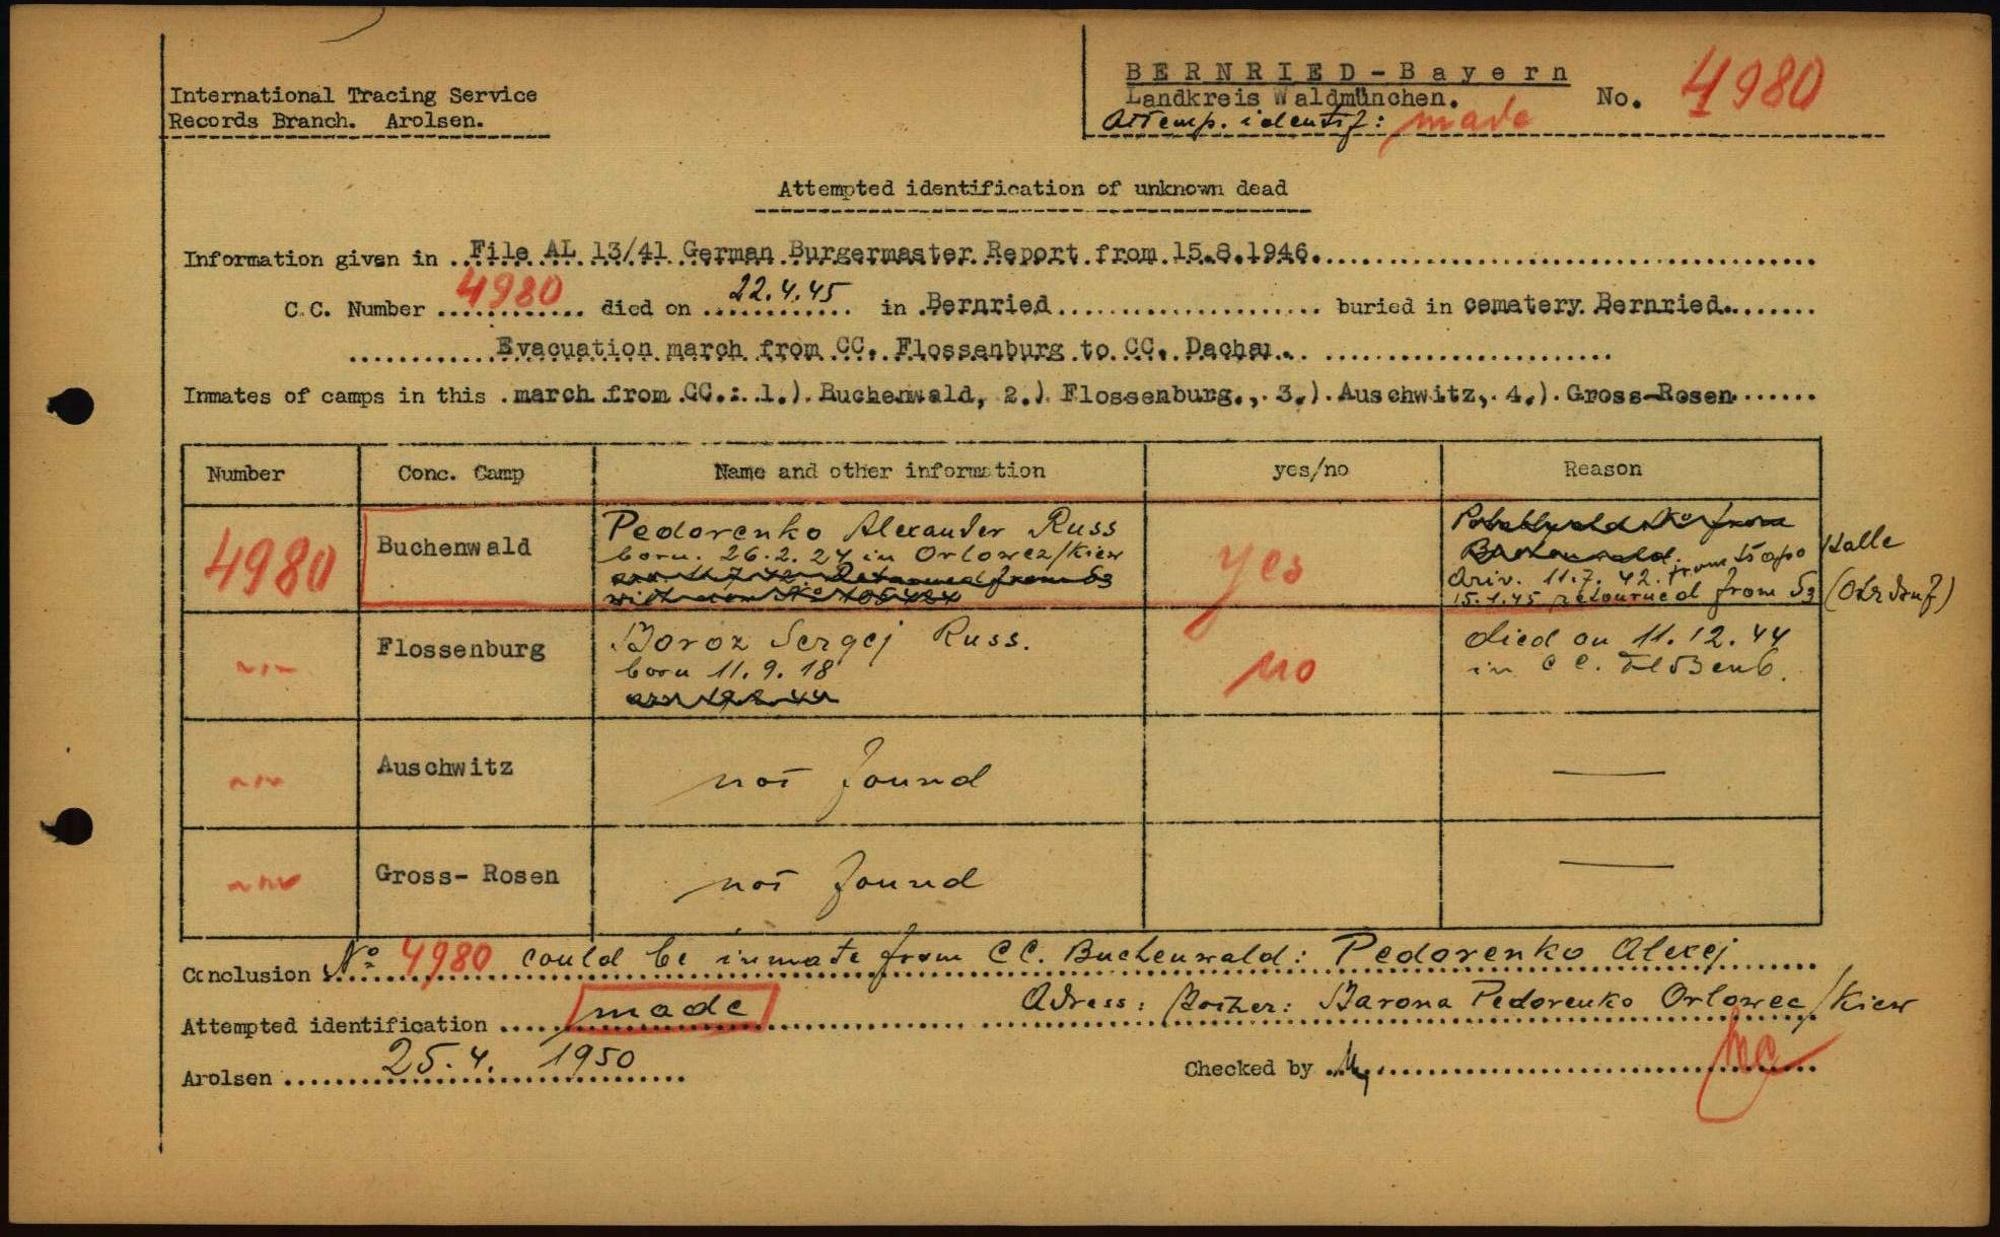 International Tracing Service
Records Branch. Arolsen.
BERNRIED-Bayern
Landkreis Waldmünchen. No. 4980
Attemp. identif: made
Attempted identification of unknown dead
Information given in File AL 13/41 German Burgermaster Report from 15.8.1946.
C.C. Number 4980 died on 22.4.45 in Bernried buried in cematery Bernried.
Evacuation march from CC. Flossenburg to CC. Dachau.
Inmates of camps in this march from CC.: 1.) Buchenwald, 2.) Flossenburg., 3.) Auschwitz, 4.) Gross-Rosen
Number Conc. Camp Name and other information yes/no Reason
4980 Buchenwald Pedorenko Alexander Russ yes
born. 26.2.24 in Orlowez/Kiew
from
Buchenwald. from Stapo Halle
Ariv. 11.7.42.
15.1.45 retourned from S3 (Ohrdruf)
Flossenburg Boroz Sergej Russ. no died on 11.12.44
born 11.9.18 in CC. Floßenb.
Auschwitz not found
Gross-Rosen not found
Conclusion No 4980 could be inmate from CC. Buchenwald: Pedorenko Alexej
Adress: Mother: Barona Pedorenko Orlowec/Kiew
Attempted identification made
Arolsen 25.4. 1950
Checked by